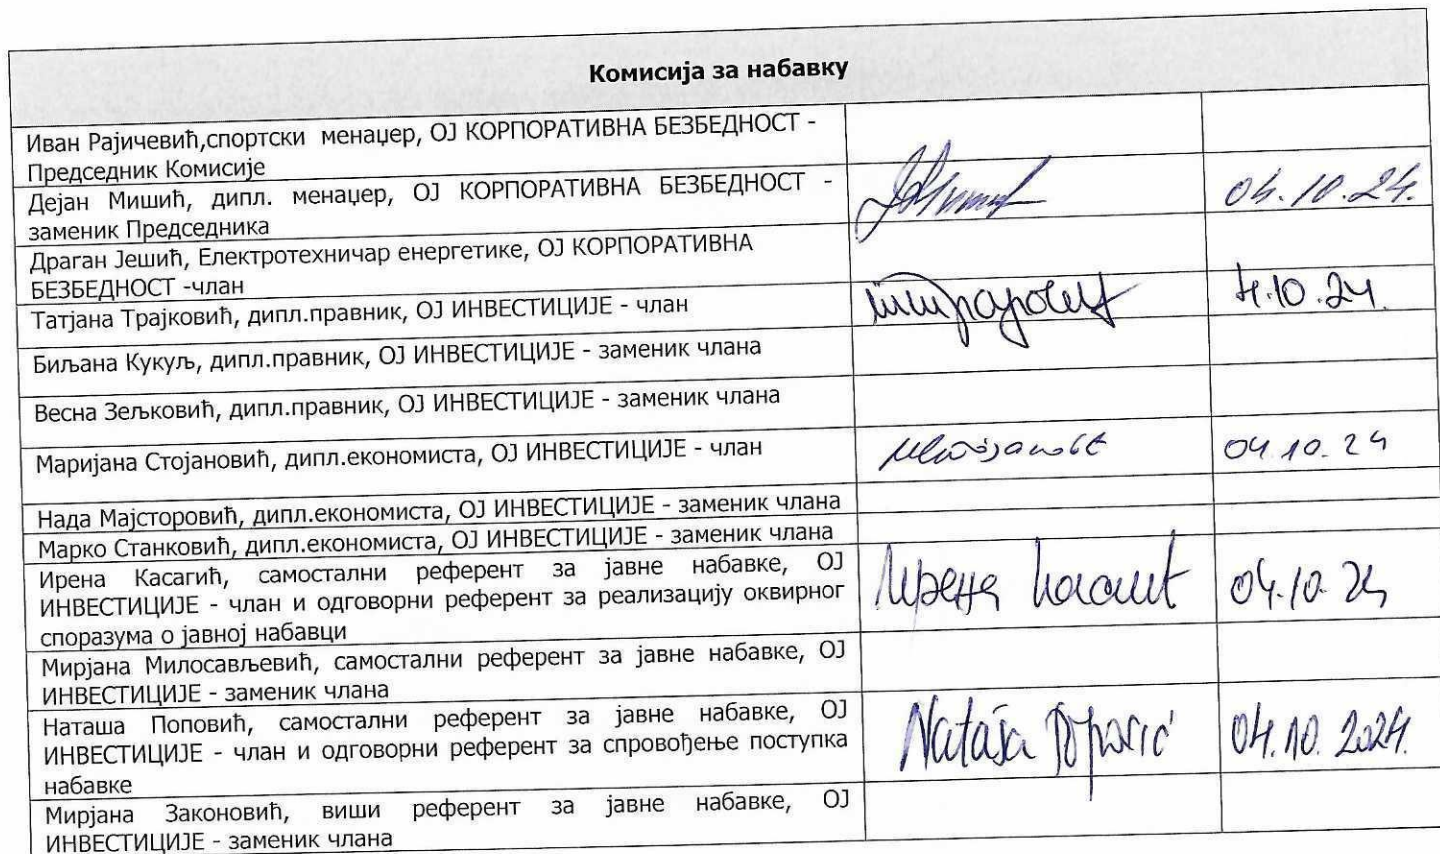 Комисија за набавку
Иван Рајичевић,спортски менаџер, ОЈ КОРПОРАТИВНА БЕЗБЕДНОСТ -
Председник Комисије
Дејан Мишић, дипл. менаџер, ОЈ КОРПОРАТИВНА БЕЗБЕДНОСТ -
заменик Председника
04.10.24.
Драган Јешић, Електротехничар енергетике, ОЈ КОРПОРАТИВНА
БЕЗБЕДНОСТ -члан
Татјана Трајковић, дипл.правник, ОЈ ИНВЕСТИЦИЈЕ - члан
4.10.24.
Биљана Кукуљ, дипл.правник, ОЈ ИНВЕСТИЦИЈЕ - заменик члана
Весна Зељковић, дипл.правник, ОЈ ИНВЕСТИЦИЈЕ - заменик члана
Маријана Стојановић, дипл.економиста, ОЈ ИНВЕСТИЦИЈЕ - члан
04 10. 24
Нада Мајсторовић, дипл.економиста, ОЈ ИНВЕСТИЦИЈЕ - заменик члана
Марко Станковић, дипл.економиста, ОЈ ИНВЕСТИЦИЈЕ - заменик члана
Ирена Касагић, самостални референт за јавне набавке, ОЈ
ИНВЕСТИЦИЈЕ - члан и одговорни референт за реализацију оквирног
споразума о јавној набавци
Ирена 04.10.24
Мирјана Милосављевић, самостални референт за јавне набавке, ОЈ
ИНВЕСТИЦИЈЕ - заменик члана
Наташа Поповић, самостални референт за јавне набавке, ОЈ
ИНВЕСТИЦИЈЕ - члан и одговорни референт за спровођење поступка
набавке
Nataša Popović 04.10.2024.
Мирјана Законовић, виши референт за јавне набавке, ОЈ
ИНВЕСТИЦИЈЕ - заменик члана